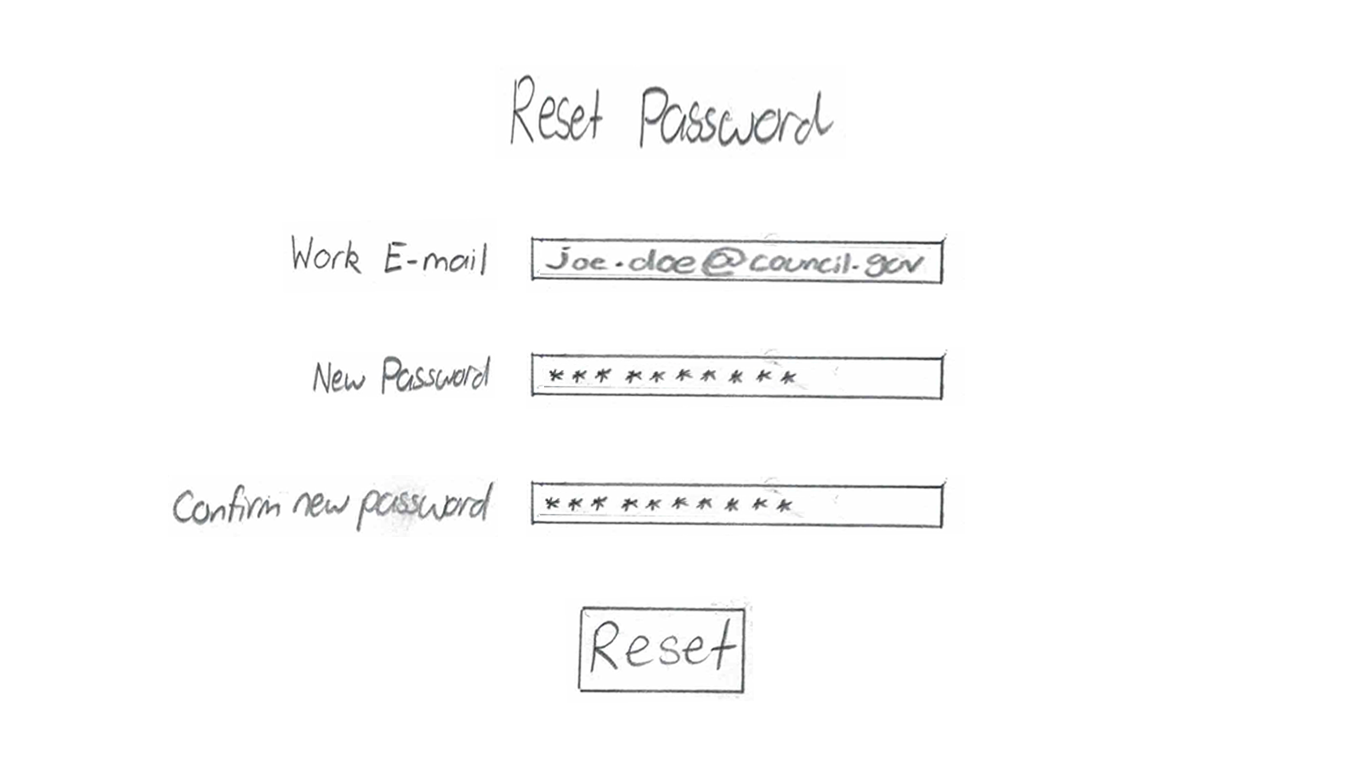 Reset Password
Work E-mail joe.doe@council.gov
New Password **********
Confirm new password **********
Reset